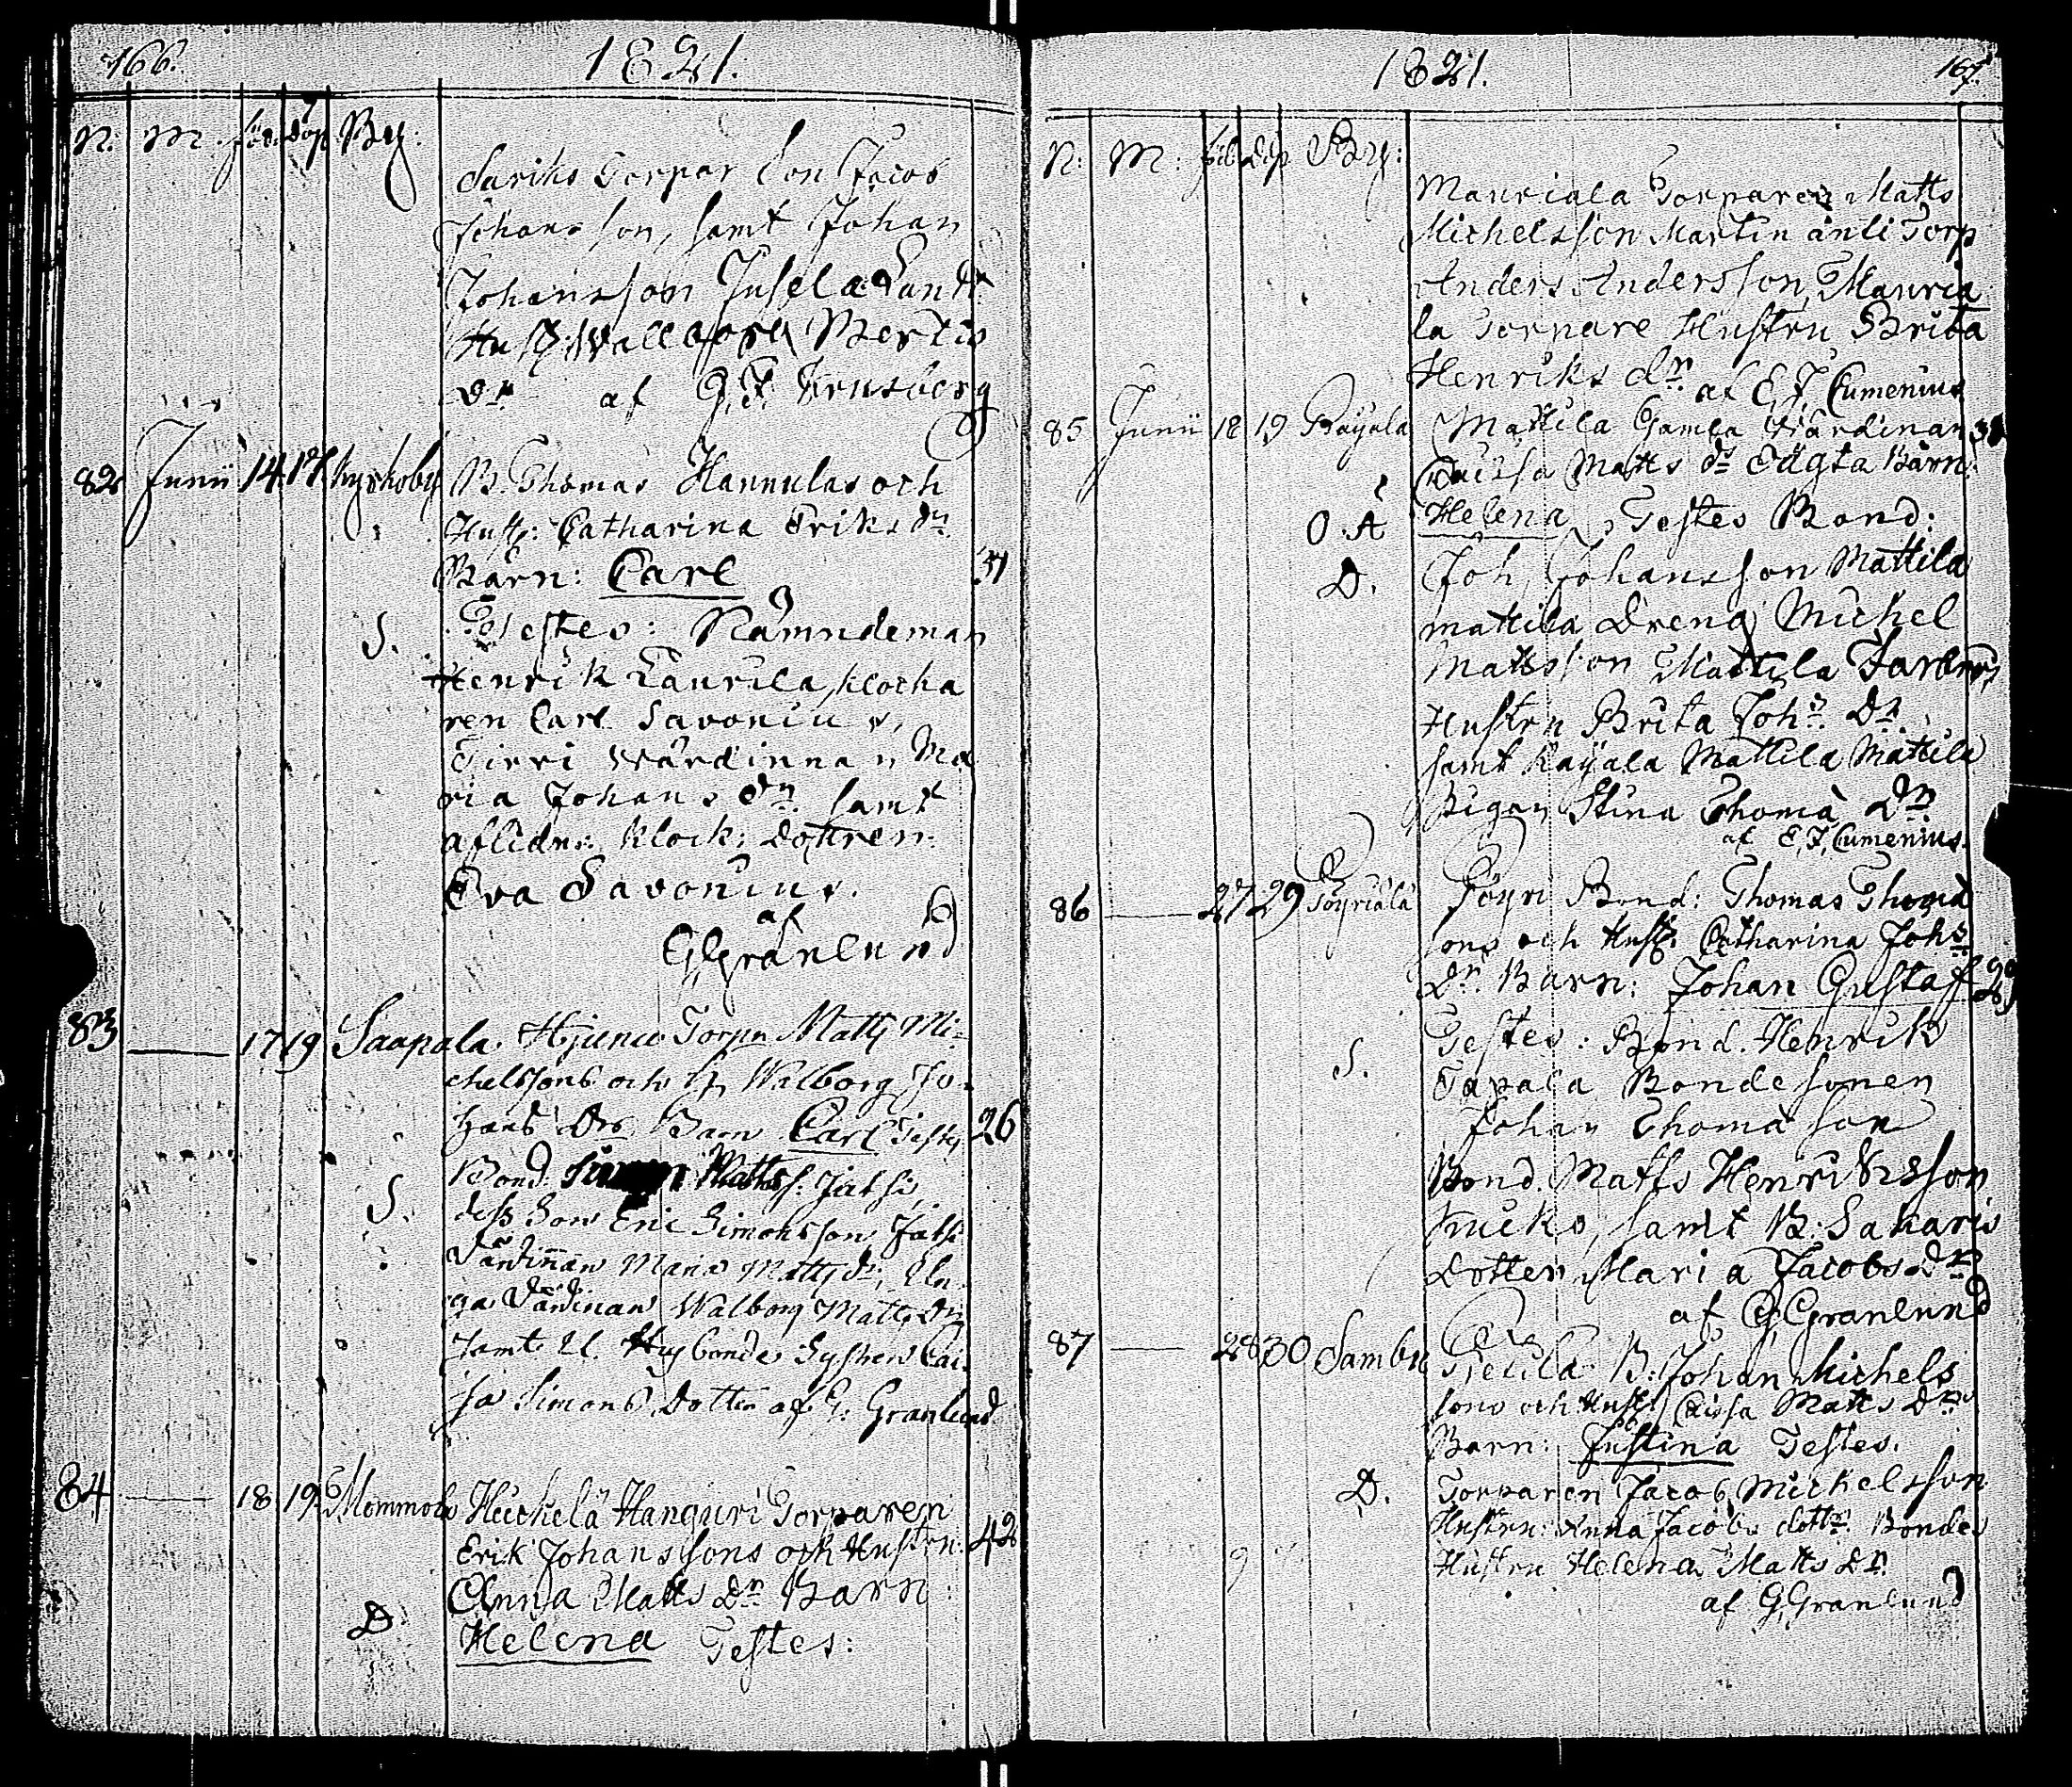 166.
1821.
N: M. föd: döp By:
Sariks Torpar Son Jacob
Johansson, samt Johan
Johansson
Hust: Wallborg Bertils
Dr. af G. F.
82 Junii 14 17 Kyrkoby B. Thomas Hannulas och
Hust: Catharina Eriks Dr.
Barn: Carl
S. Testes: Nämndeman
Henrik Taurila, klocka
ren Carl Savonius,
Tirri Wärdinnan Ma
ria Johans Dr. samt
aflidne: Klock: Dottren:
Eva Savonius.
af
G Granlund
83 — 17 19 Saapala Torpn Matts Mi-
chelssons och H. Walborg Jo-
hans Drs Barn Carl Testes 26
S. Bond: Matts s:
dess Son Eric Simonsson
Värdinnan Maria Matts dr,
ga Värdinan Walborg Matts Dr
samt U. Husbondes Systern Cai-
sa Simons Dotter af G: Granlund
84 — 18 19 Mommola Huchela Hanguri Torparen
Erik Johanssons och Hustru: 42
Anna Matts Dr Barn:
D Helena Testes:
1821.
167.
N: M: föd döp By:
Mauriala Torparen Matts
Michelsson Martin änti Torp
Anders Andersson, Mauria
la Torpare Hustru Brita
Henriks dr. af E. J. Cumenius
85 Junii 18 19 Mattila Gamla Wärdinan 38
Caisa Matts dr Oägta Barn:
O. A Helena, Testes Bond:
D. Joh, Johansson Mattila
mattila Dreng Michel
Mattsson Mattila
Hustru Brita Johs. Dr.
samt Rayala Mattila Mattila
Pigan Stina Thoma Dr.
af E, J, Cumenius.
86 — 27 29 Pöyriälä Pöyri Bond: Thomas Thoma
sons och Hust: Catharina Johs
Dr. Barn: Johan Gustaf 29
Testes: Bond. Henrik
S. Tapala Bondesonen
Johan Thomasson
Bond. Matts Henriksson
samt B: Sakaris
Dotter Maria Jacobs Dr
af G, Granlund
87 — 28 30 Sambu B: Johan Michels
sons och Hust: Caisa Matts Dr
Barn: Justina Testes.
D. Torparen Jacob Mickelsson
Hustru: Anna Jacobs dottr. Bondes
Hustru Helena Matts Dr.
af G, Granlund